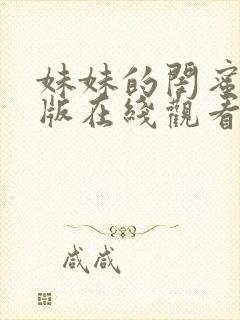 妹妹的閨蜜
版在綫觀看
咸咸